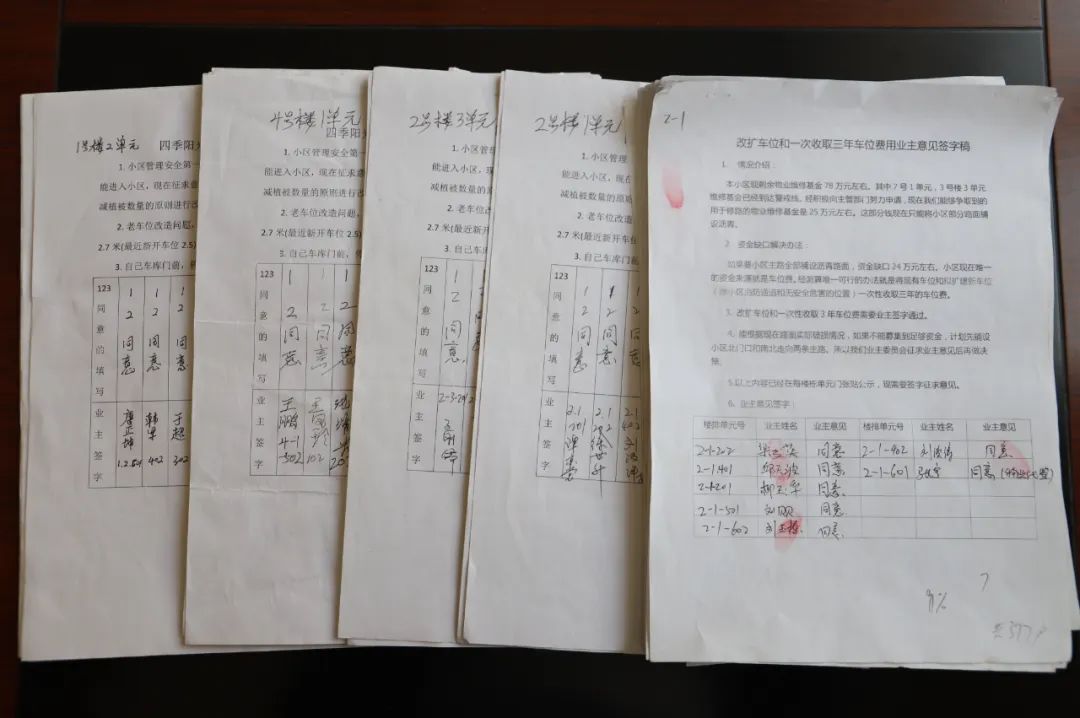 1号楼2单元 四季阳
1. 小区管理安全第一
能进入小区，现在征求意
减植被数量的原则进行改
2. 老车位改造问题，
2.7米(最近新开车位2.5)
3. 自己车库门前，
123同意的填写
1 2 同意
1 2 同意
1 2 同意
业主签字
402
于超 302
4号楼1单元
四季阳
1. 小区管理安全第一
能进入小区，现在征求意
减植被数量的原则进行改
2. 老车位改造问
2.7米(最近新开车位2.5)
3. 自己车库门前，
123同意的填写
1 2 同意
1 2 同意
1 2 同意
业主签字
王鹏 4-1 502
102
2号楼3单元
四季
1. 小区管理
能进入小区，现
减植被数量的原
2. 老车位改
2.7米(最近新开
3. 自己车库
123同意的填写
1 2 同意
业主签字
2号楼1单元
四季
1. 小区管理
能进入小区，现在
减植被数量的原
2. 老车位改
2.7米(最近新开
3. 自己车库
123同意的填写
1 2 同意
1 2 同意
1 2 同意
业主签字
2-1
改扩车位和一次收取三年车位费用业主意见签字稿
1. 情况介绍：
本小区现剩余物业维修基金78万元左右。其中7号1单，3号楼3单元
维修基金已经到达警戒线。经积极向主管部门努力申请，现在我们能够争取到的
用于修路的物业维修基金是25万元左右。这部分钱现在只能将小区部分路面铺
设沥青。
2. 资金缺口解决办法：
如果要小区主路全部铺设沥青路面，资金缺口24万元左右。小区现在唯一
的资金来源就是车位费。经测算唯一可行的办法就是将现有车位和拟扩建新车位
（除小区消防通道和无安全危害的位置）一次性收取三年的车位费。
3. 改扩车位和一次性收取3年车位费需要业主签字通过。
4. 能根据现在路面实际破损情况，如果不能募集到足够资金，计划先铺设
小区北门口和南北走向两条主路。所以我们业主委员会征求业主意见后再做决
策。
5.以上内容已经在每楼栋单元门张贴公示，现需要签字征求意见。
6. 业主意见签字：
楼排单元号 业主姓名 业主意见 楼排单元号 业主姓名 业主意见
2-1-202 同意 2-1-402 同意
2-1-401 同意 2-1-601 同意
2-1-201 同意
2-1-501 同意
2-1-602 同意
7